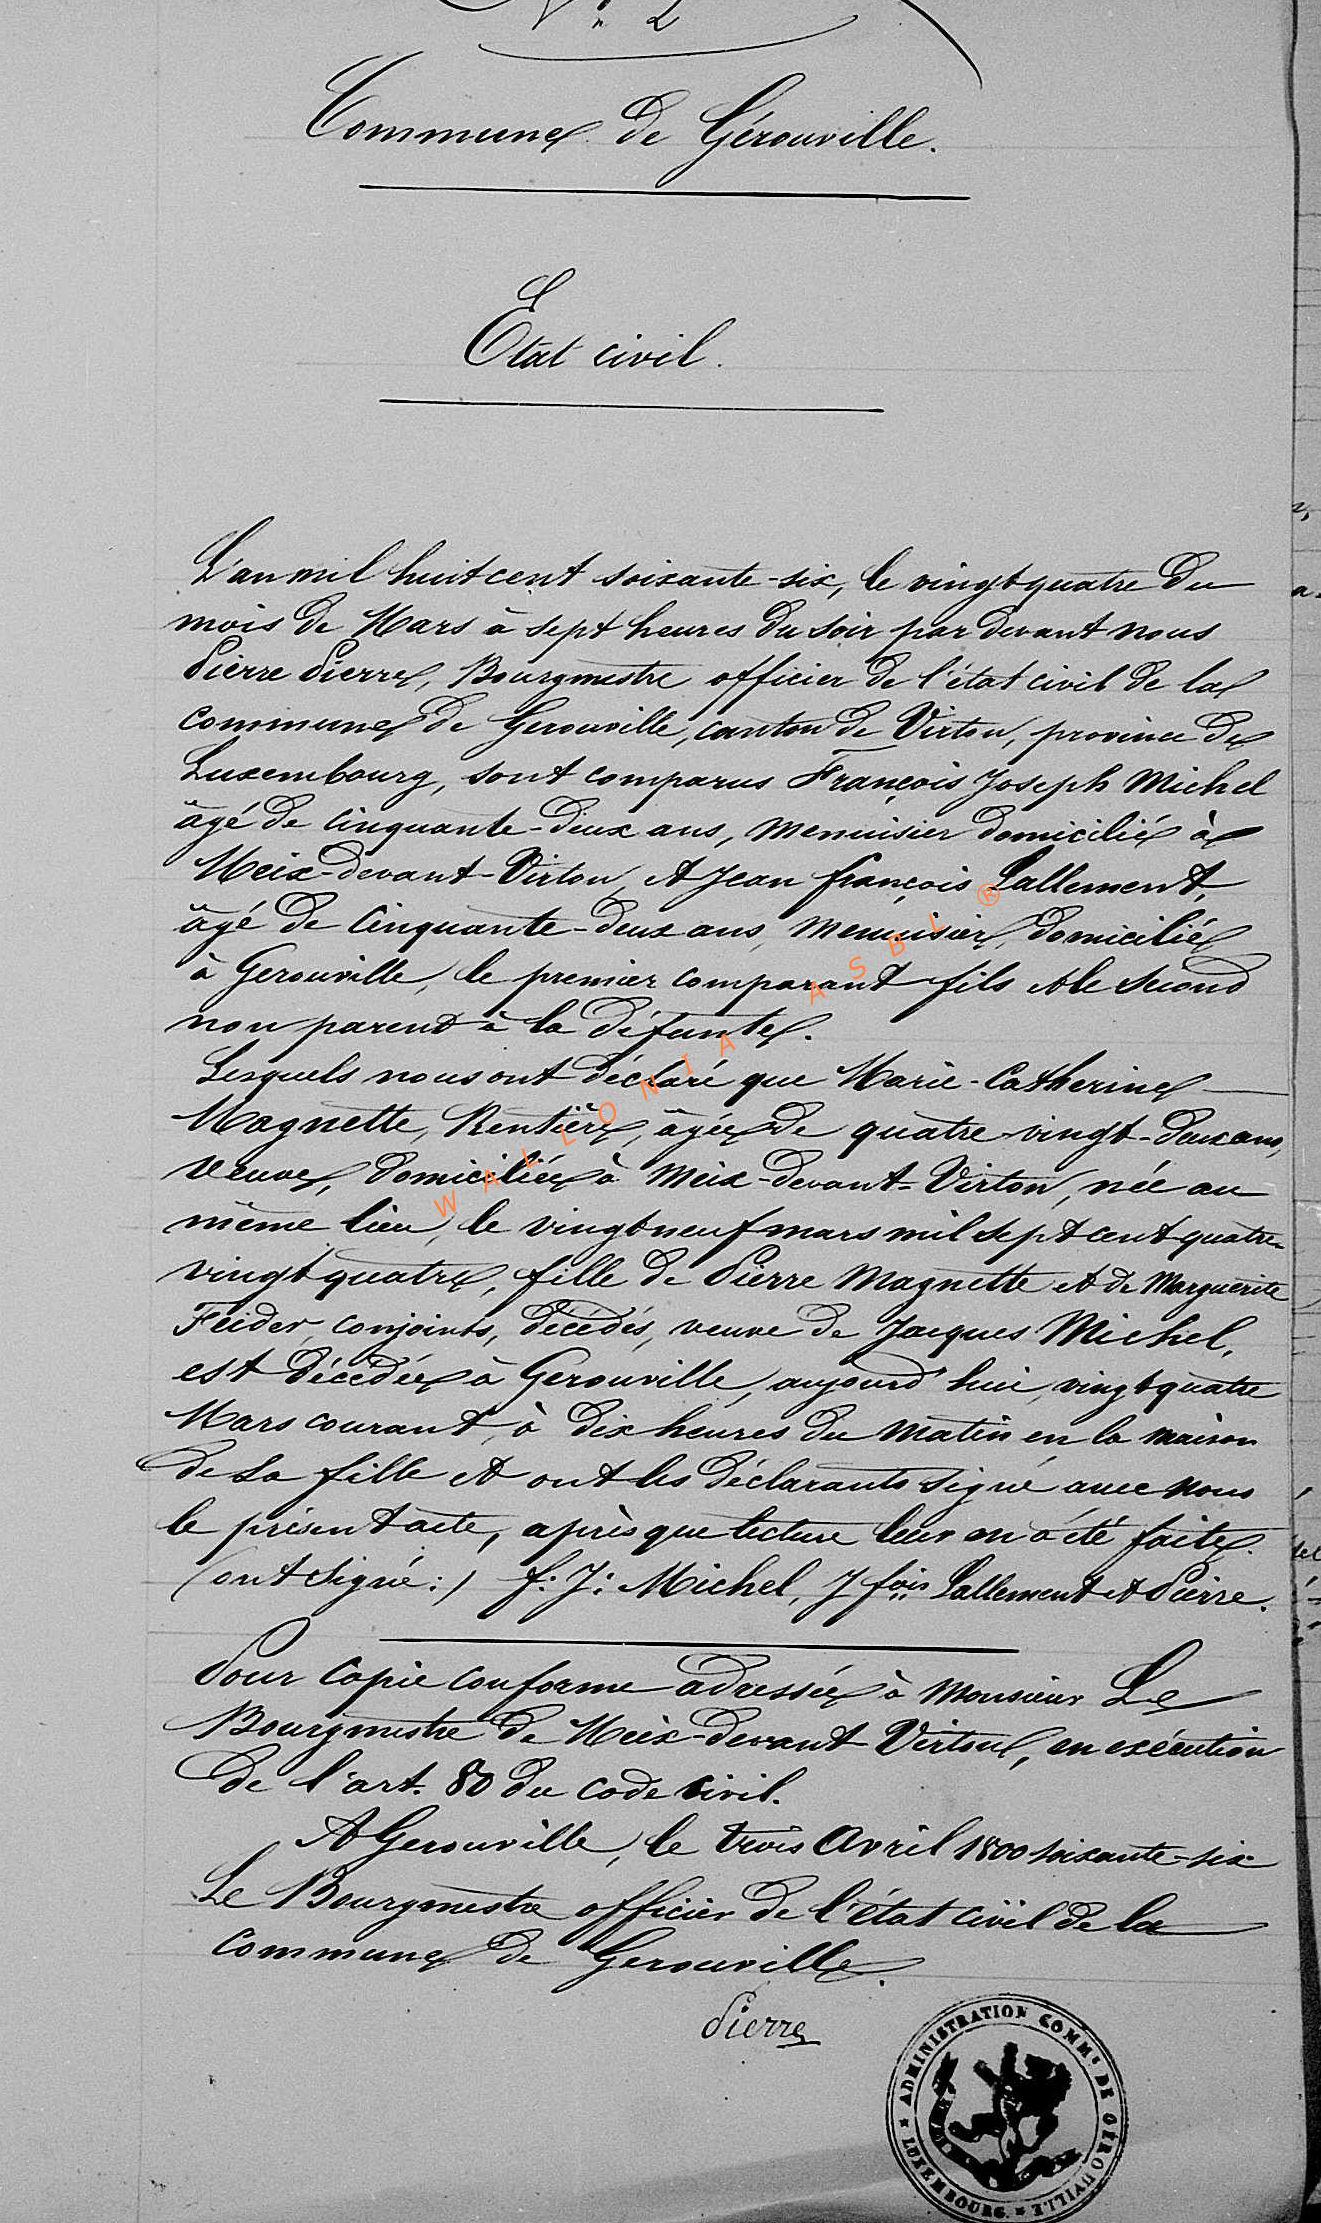 N° 2
Commune de Gérouville.
Etat civil.
L'an mil huit cent soixante-six, le vingt quatre du
mois de Mars à sept heures du soir par devant nous
Pierre Pierre, Bourgmestre officier de l'état civil de la
commune de Gerouville, canton de Virton, province de
Luxembourg, sont comparus François Joseph Michel
âgé de cinquante-deux ans, menuisier domicilié à
Meix-devant-Virton, et Jean françois Lallement,
âgé de Cinquante-deux ans, menuisier, domicilié
à Gerouville, le premier comparant fils et le second
non parent à la défunte.
Lesquels nous ont déclaré que Marie-Catherine
Magnette, Rentière, âgée de quatre-vingt-deux ans,
veuve, domiciliée à Meix-devant-Virton, née au
même lieu, le vingt neuf mars mil sept cent quatre-
vingt quatre, fille de Pierre Magnette et de Marguerite
Feider, conjoints, décédés, veuve de Jacques Michel,
est décédée à Gerouville, aujourd'hui, vingt quatre
Mars courant, à dix heures du matin en la maison
de sa fille et ont les déclarants signé avec nous
le présent acte, après que lecture leur en a été faite.
(ont signé:) f: J: Michel, J fois Lallement et Pierre.
Pour copie conforme adressée à Monsieur Le
Bourgmestre de Meix-devant Virton, en exécution
de l'art. 80 du code civil.
A Gerouville, le trois Avril 1800 soixante-six
Le Bourgmestre officier de l'état civil de la
commune de Gerouville.
Pierre
ADMINISTRATION COMMLE DE GÉROUVILLE
* LUXEMBOURG *
WALLONIA ASBL ®